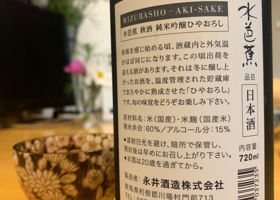 MIZUBASHO – AKI-SAKE
水芭蕉 秋酒 純米吟醸ひやおろし
秋風を感じ始める頃、酒蔵内と外気温
がほぼ同じになります。この頃出荷を
迎える酒があります。それは冬に醸し上
がったお酒を、温度管理された貯蔵庫
でまろやかに熟成させた「ひやおろし」
です。旬の味覚をどうぞお楽しみ下さい。
原材料名:米(国産)・米麹(国産米)
精米歩合:60%/アルコール分:15%
●直射日光を避け、暗所で保管し、
開封後は早めにお召し上がり下さい。
●お酒は20歳を過ぎてから。
永井酒造株式会社
群馬県利根郡川場村門前713
水芭蕉
品目
日本酒
内容量
720ml